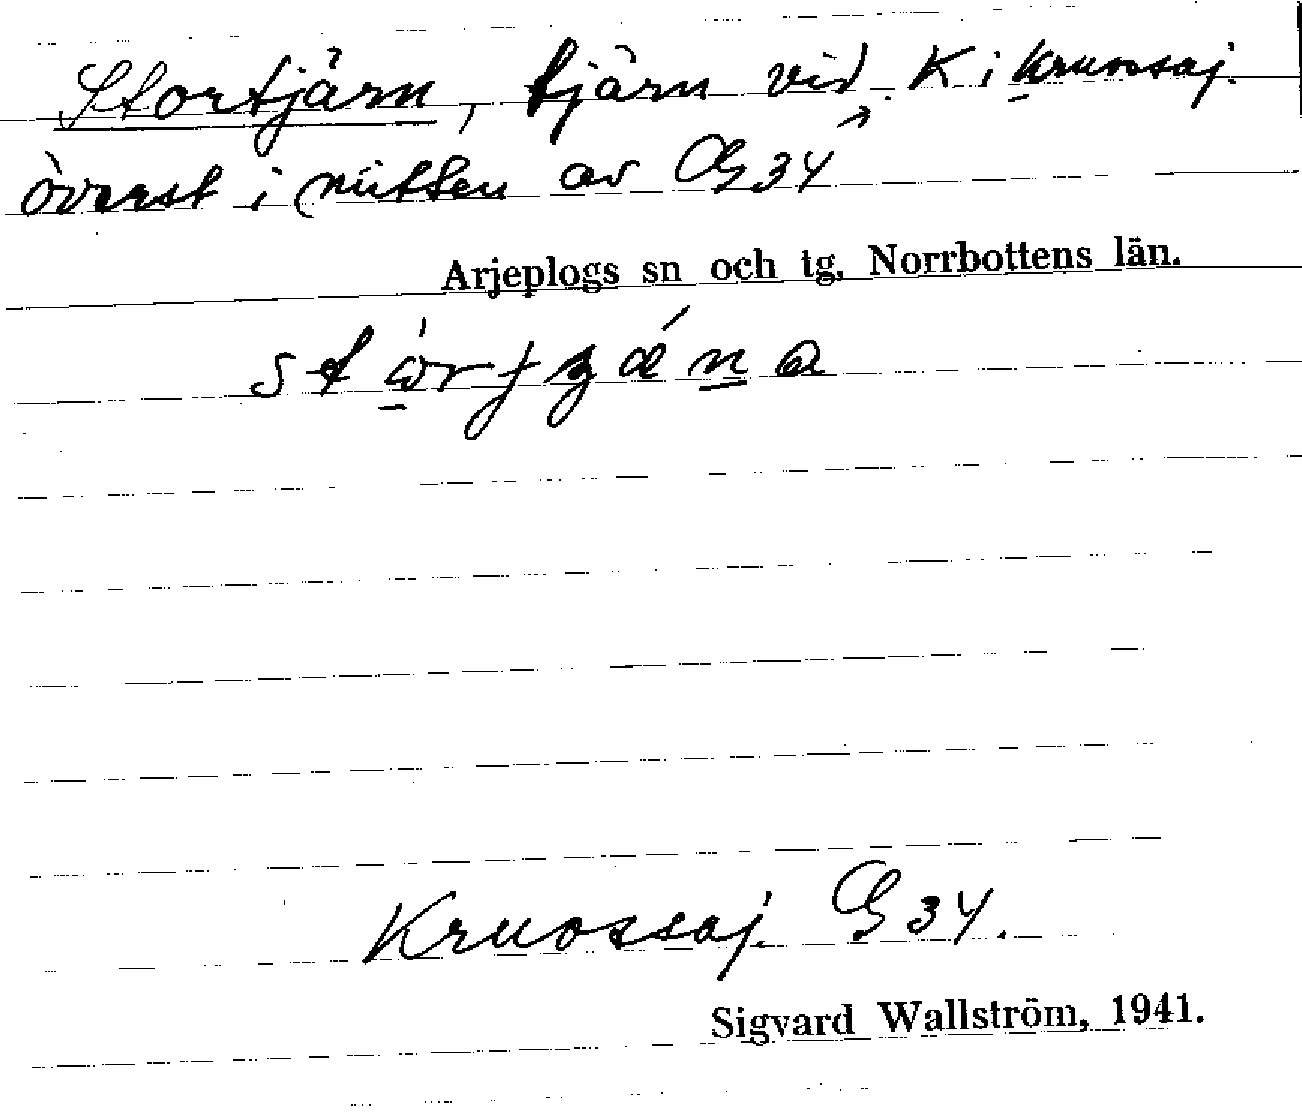 Stortjärn, tjärn vid K i Kruossaj.
överst i mitten av G 34
Arjeplogs sn och tg. Norrbottens län.
Kruossaj. G 34.
Sigvard Wallström, 1941.